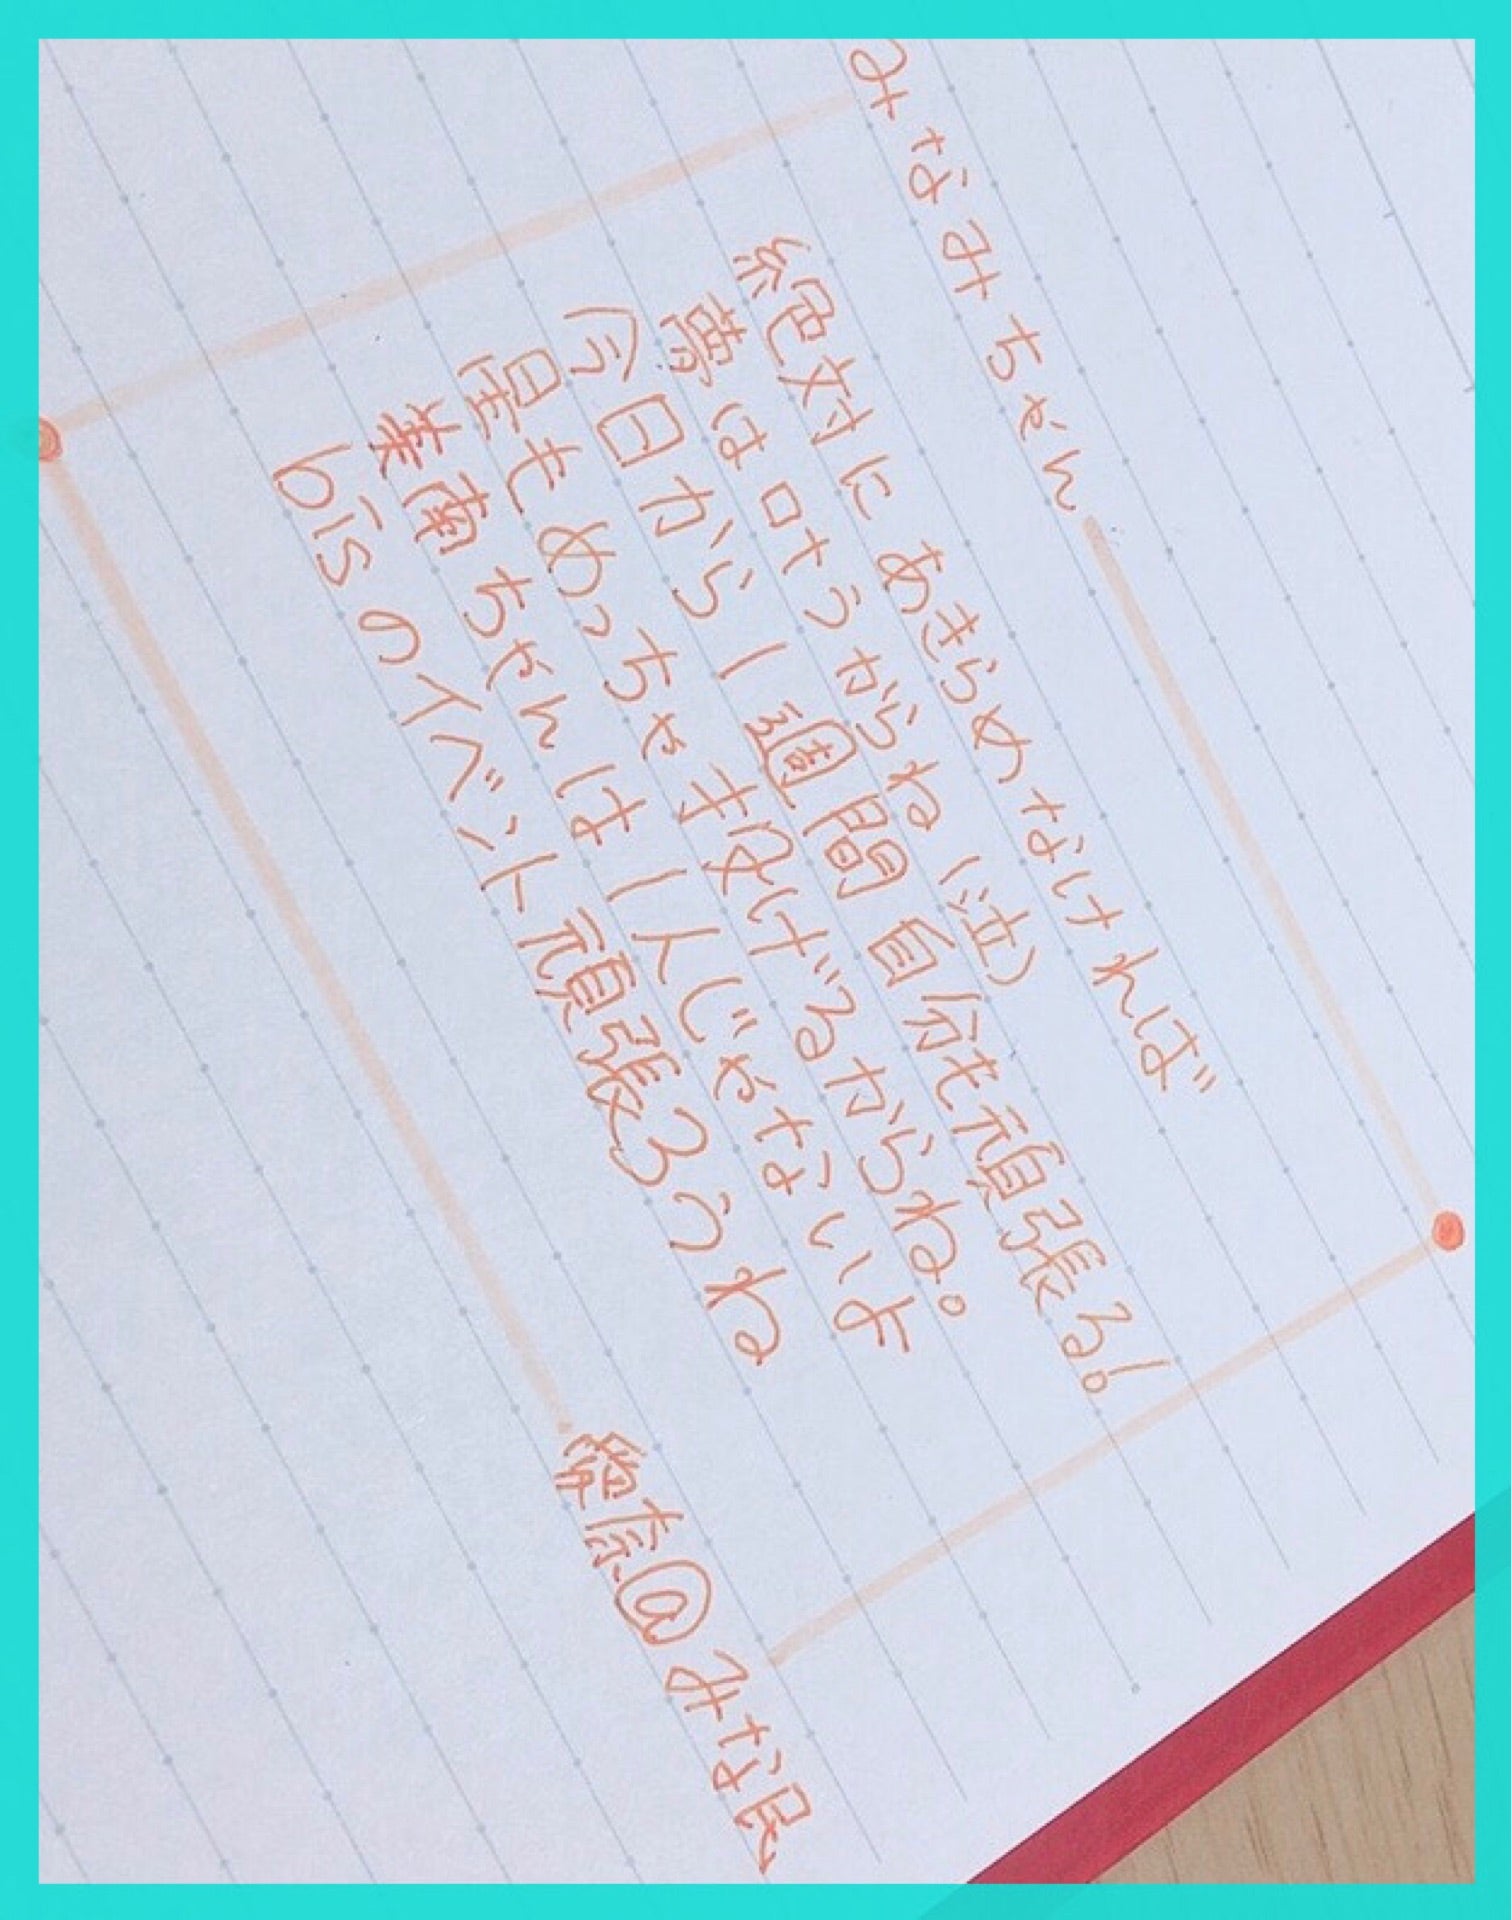 みなみちゃん
絶対にあきらめなければ
夢は叶うからね(泣)
今日から1週間自分も頑張る!
星もめっちゃ投げるからね。
美南ちゃんは1人じゃないよ
bisのイベント頑張ろうね
@みな民